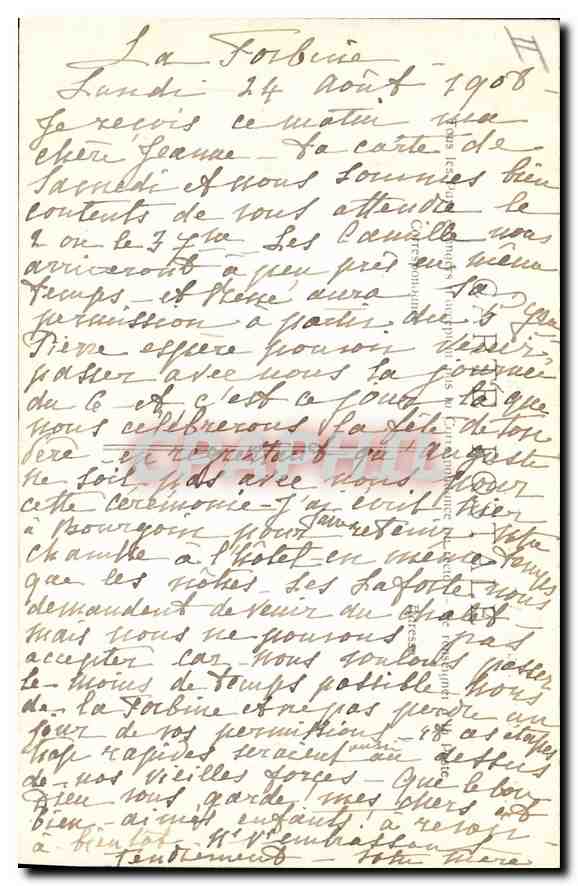 La Forbine
Lundi 24 Août 1908
Je reçois ce matin ma
chère Jeanne - ta carte de
Samedi et nous sommes bien
contents de vous attendre le
2 ou le 3 7bre - Les Camille nous
arriveront à peu près en même
temps - et René aura sa
permission à partir du 5
Pierre espère pouvoir venir
passer avec nous la journée
du 6 - et c'est ce jour là que
nous célébrerons la fête de ton
père en regrettant qu'Auguste
ne soit pas avec nous pour
cette cérémonie - J'ai écrit hier
à Bourgoin pour retenir votre
chambre à l'hôtel en même temps
que les nôtres - Les Laforte nous
demandent de venir du chalet -
mais nous ne pouvons pas
accepter car nous voulons passer
le moins de temps possible
de la Forbine et ne pas perdre un
jour de vos permissions - et as étapes
trop rapides seraient au dessus
de nos vieilles forces - Que le bon
Dieu vous garde mes chers et
bien-aimés enfants à revoir -
à bientôt Nous Vs embrassons
tendrement - votre mère
CARTE POSTALE
Correspondance
Adresse
CPAPHIL